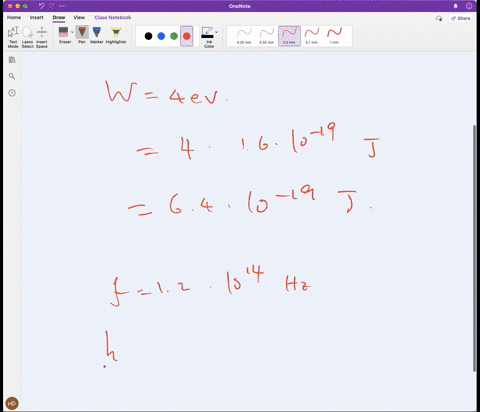 OneNote
Home Insert Draw View Class Notebook
Share
Text Mode Lasso Select Insert Space Eraser Pen Marker Highlighter Ink Color 0.25 mm 0.35 mm 0.5 mm 0.7 mm 1 mm
W = 4 ev.
= 4 · 1.6 · 10^-19 J
= 6.4 · 10^-19 J.
f = 1.2 · 10^14 Hz
h
HD